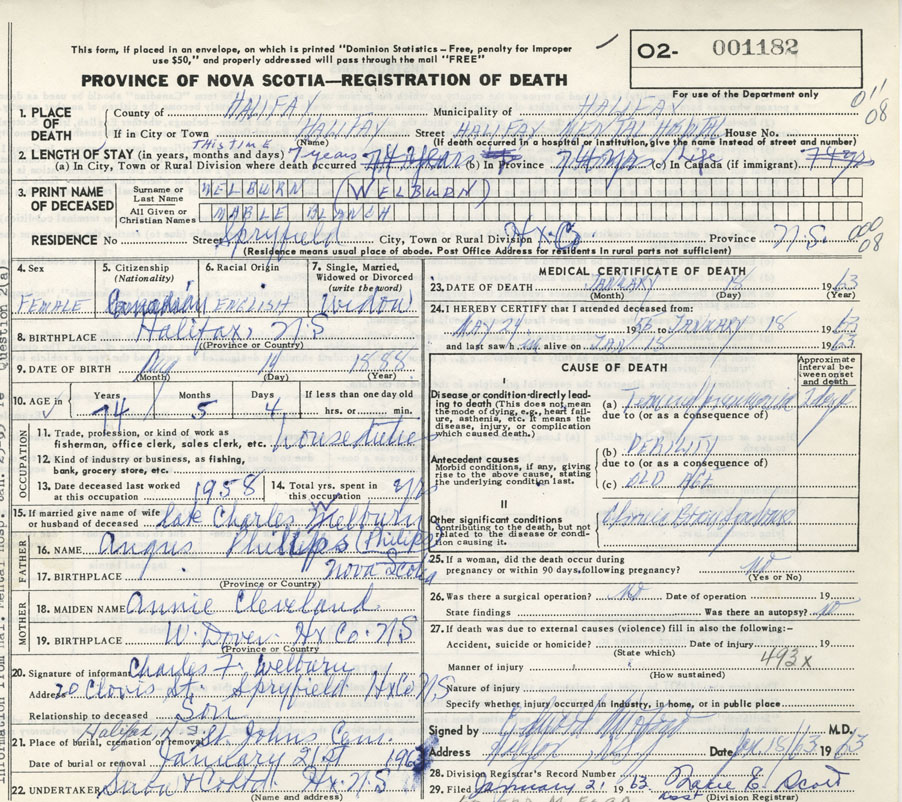 This form, if placed in an envelope, on which is printed "Dominion Statistics – Free, penalty for improper
use $50," and properly addressed will pass through the mail "FREE"
O2- 001182
PROVINCE OF NOVA SCOTIA—REGISTRATION OF DEATH
For use of the Department only
011
08
1. PLACE OF DEATH
County of HALIFAX Municipality of HALIFAX
If in City or Town HALIFAX Street HALIFAX MENTAL HOSPITAL House No.
(Name) (If death occurred in a hospital or institution, give the name instead of street and number)
THIS TIME
2. LENGTH OF STAY (in years, months and days)
(a) In City, Town or Rural Division where death occurred 7 years 74 years (b) In Province 74 yrs Life (c) In Canada (if immigrant) 74 yrs
3. PRINT NAME OF DECEASED
Surname or Last Name WELBURN (WELBURN)
All Given or Christian Names MABLE BLANCH
000
08
RESIDENCE No Street Spryfield City, Town or Rural Division Hx Co Province N.S.
(Residence means usual place of abode. Post Office Address for residents in rural parts not sufficient)
4. Sex
FEMALE
5. Citizenship (Nationality)
Canadian
6. Racial Origin
ENGLISH
7. Single, Married, Widowed or Divorced (write the word)
Widow
8. BIRTHPLACE Halifax, N.S
(Province or Country)
9. DATE OF BIRTH Aug 14 1888
(Month) (Day) (Year)
10. AGE in Years Months Days If less than one day old
74 5 4 hrs. or min.
OCCUPATION
11. Trade, profession or kind of work as
fisherman, office clerk, sales clerk, etc. house duties
12. Kind of industry or business, as fishing,
bank, grocery store, etc.
13. Date deceased last worked
at this occupation 1958
14. Total yrs. spent in
this occupation
15. If married give name of wife
or husband of deceased Late Charles Welburn
FATHER
16. NAME Angus Phillips (Philips)
17. BIRTHPLACE Nova Scotia
(Province or Country)
MOTHER
18. MAIDEN NAME Annie Cleveland
19. BIRTHPLACE W. Dover Hx Co. N.S
(Province or Country)
20. Signature of informant Charles F. Welburn
Address 20 Clovis St. Spryfield Hx Co N.S
Relationship to deceased Son
Halifax, N.S.
21. Place of burial, cremation or removal St. Johns Cem.
Date of burial or removal January 21st 1963
22. UNDERTAKER Snow & Hx. N.S
(Name and address)
MEDICAL CERTIFICATE OF DEATH
23. DATE OF DEATH JANUARY 18 1963
(Month) (Day) (Year)
24. I HEREBY CERTIFY that I attended deceased from:
MAY 24, to JANUARY 18 1963
and last saw h alive on JAN 18 1963
CAUSE OF DEATH
Approximate interval between onset and death
I
Disease or condition directly leading to death (This does not mean
the mode of dying, e.g., heart failure, asthenia, etc. It means the
disease, injury, or complication which caused death.)
(a) pneumonia
due to (or as a consequence of)
Antecedent causes
Morbid conditions, if any, giving rise to the above cause, stating
the underlying condition last.
(b) DEBILITY
due to (or as a consequence of)
(c) OLD AGE
II
Other significant conditions
contributing to the death, but not related to the disease or condition causing it.
Chronic Brain Syndrome
25. If a woman, did the death occur during
pregnancy or within 90 days following pregnancy? No
(Yes or No)
26. Was there a surgical operation? No Date of operation 19
State findings Was there an autopsy? No
27. If death was due to external causes (violence) fill in also the following:–
Accident, suicide or homicide? Date of injury 19
(State which)
493x
Manner of injury
(How sustained)
Nature of injury
Specify whether injury occurred in industry, in home, or in public place
Signed by M.D.
Address Date Jan 18/63 1963
28. Division Registrar's Record Number
29. Filed January 21, 1963 Marie E. Scott
(Division Registrar)